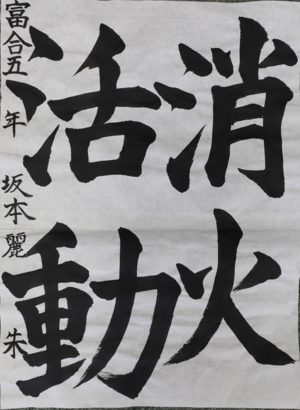 消火
活動
富合五年 坂本麗朱